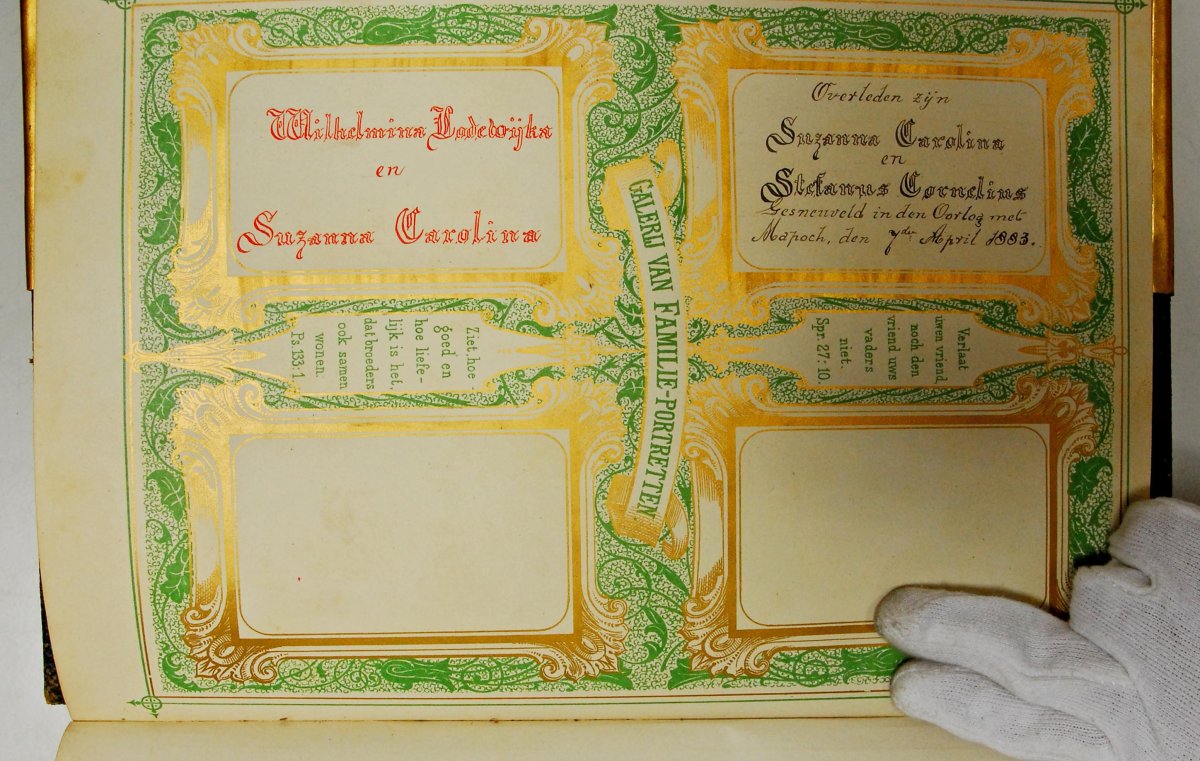 Wilhelmina Lodewijka
en
Suzanna Carolina
Overleden zijn
Suzanna Carolina
en
Stefanus Cornelius
Gesneuveld in den Oorlog met
Mapoch, den 7de April 1883.
GALERIJ VAN FAMILIE-PORTRETTEN
Ziet, hoe
goed en
hoe liefe-
lijk is het,
dat broeders
ook samen
wonen.
Ps. 133:1.
Verlaat
uwen vriend
noch den
vriend uws
vaders
niet.
Spr. 27:10.